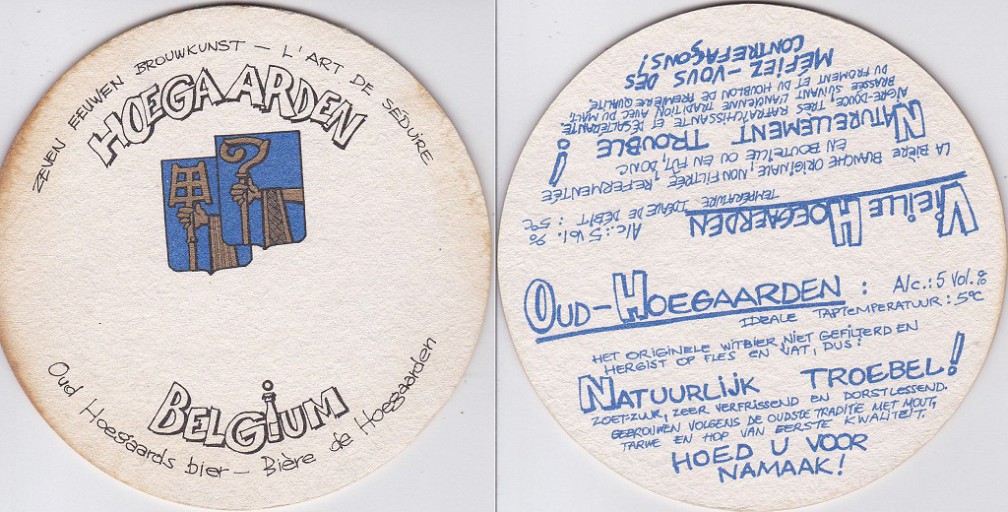 ZEVEN EEUWEN BROUWKUNST – L'ART DE SEDUIRE
HOEGAARDEN
BELGIUM
Oud Hoegaards bier – Bière de Hoegaarden
OUD-HOEGAARDEN : Alc.: 5 Vol. %
IDEALE TAPTEMPERATUUR: 5°C
HET ORIGINELE WITBIER NIET GEFILTERD EN
HERGIST OP FLES EN VAT, DUS:
NATUURLIJK TROEBEL!
ZOET-ZUUR, ZEER VERFRISSEND EN DORSTLESSEND.
GEBROUWEN VOLGENS DE OUDSTE TRADITIE MET MOUT,
TARWE EN HOP VAN EERSTE KWALITEIT.
HOED U VOOR
NAMAAK!
VIEILLE HOEGAERDEN Alc.: 5 Vol. %
TEMPERATURE IDEALE DE DÉBIT : 5°C
LA BIÈRE BLANCHE ORIGINALE, NON FILTRÉE, REFERMENTÉE
EN BOUTEILLE OU EN FÛT, DONC
NATURELLEMENT TROUBLE !
AIGRE-DOUCE, TRÈS RAFRAÎCHISSANTE ET DÉSALTÉRANTE.
BRASSÉE SUIVANT L'ANCIENNE TRADITION AVEC DU MALT,
DU FROMENT ET DU HOUBLON DE PREMIÈRE QUALITÉ.
MÉFIEZ-VOUS DES
CONTREFAÇONS!